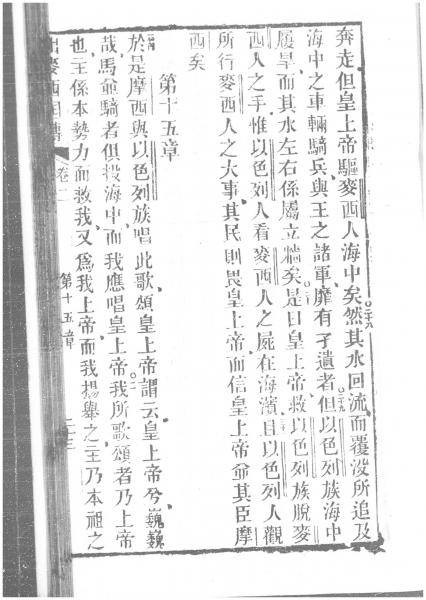 奔走但皇上帝驅麥西人海中矣然其水回流而覆沒所追及
海中之車輛騎兵與王之諸軍靡有孑遺者但以色列族海中
履旱而其水左右係屬立牆矣是日皇上帝救以色列族脫麥
西人之手惟以色列人看麥西人之屍在海濱且以色列人觀
所行麥西人之大事其民則畏皇上帝而信皇上帝爺其臣摩
西矣
第十五章
於是摩西與以色列族唱此歌頌皇上帝謂云皇上帝兮巍巍
哉馬爺騎者俱投海中而我應唱皇上帝我所歌頌者乃上帝
也王係本勢力而救我又為我上帝而我揚舉之王乃本祖之
卷二
第十五章